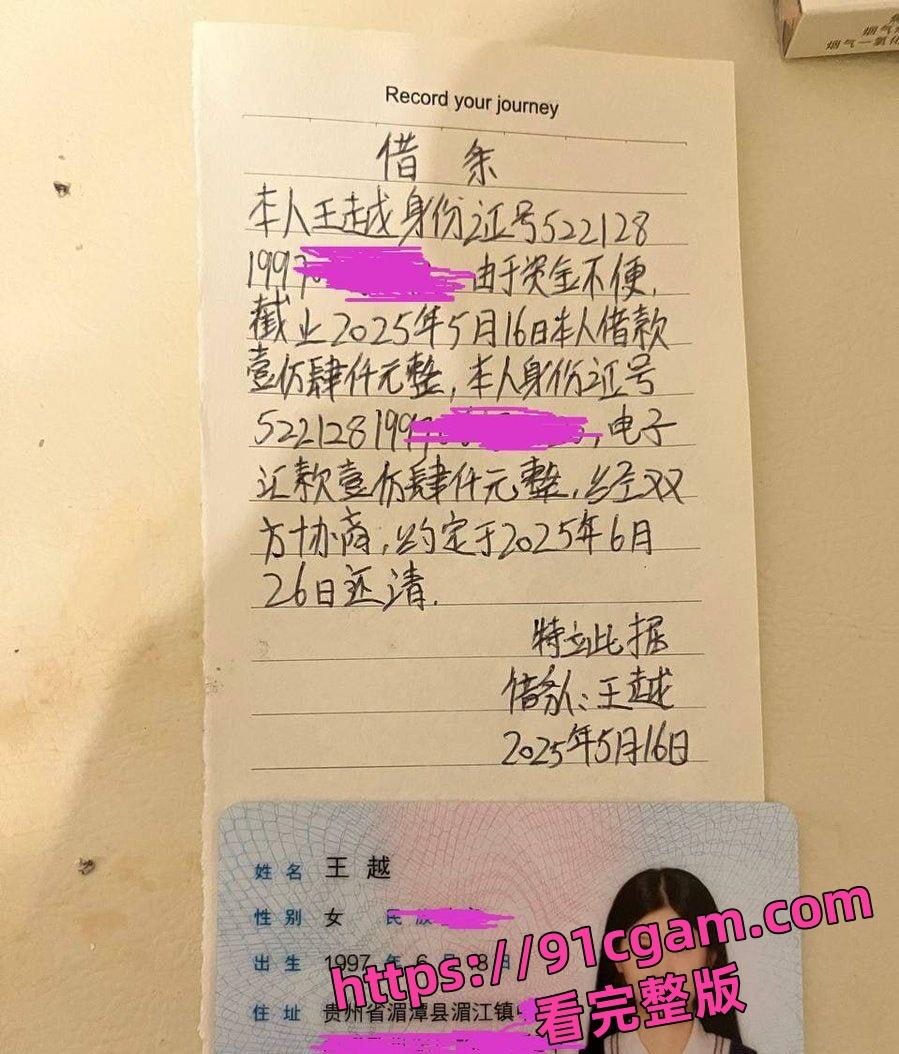 烟气
烟气一氧化
Record your journey
借 条
本人王越身份证号522128
1997 由于资金不便,
截止2025年5月16日本人借款
壹仿肆仟元整,本人身份证号
5221281997 ,电子
汇款壹仿肆仟元整,经双
方协商,约定于2025年6月
26日还清.
特立此据
借条人:王越
2025年5月16日
姓名 王越
性别 女 民族
出生 1997 年 6 月 18 日
住址 贵州省湄潭县湄江镇
https://91cgam.com
看完整版